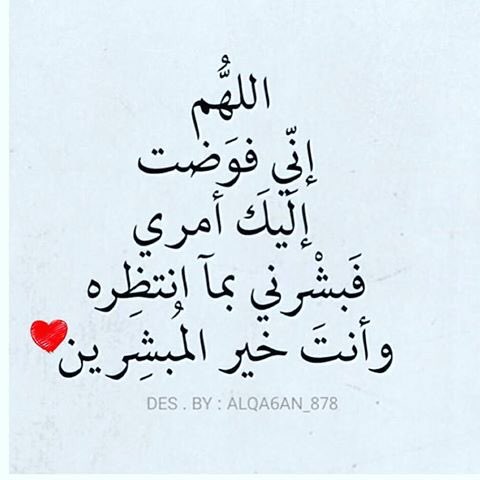 اللهُّم
إنّي فوَضت
إلَيكَ أمري
فَبشْرني بمآ إنتظِره
وأنتَ خير المُبشِرين
DES . BY : ALQA6AN_878